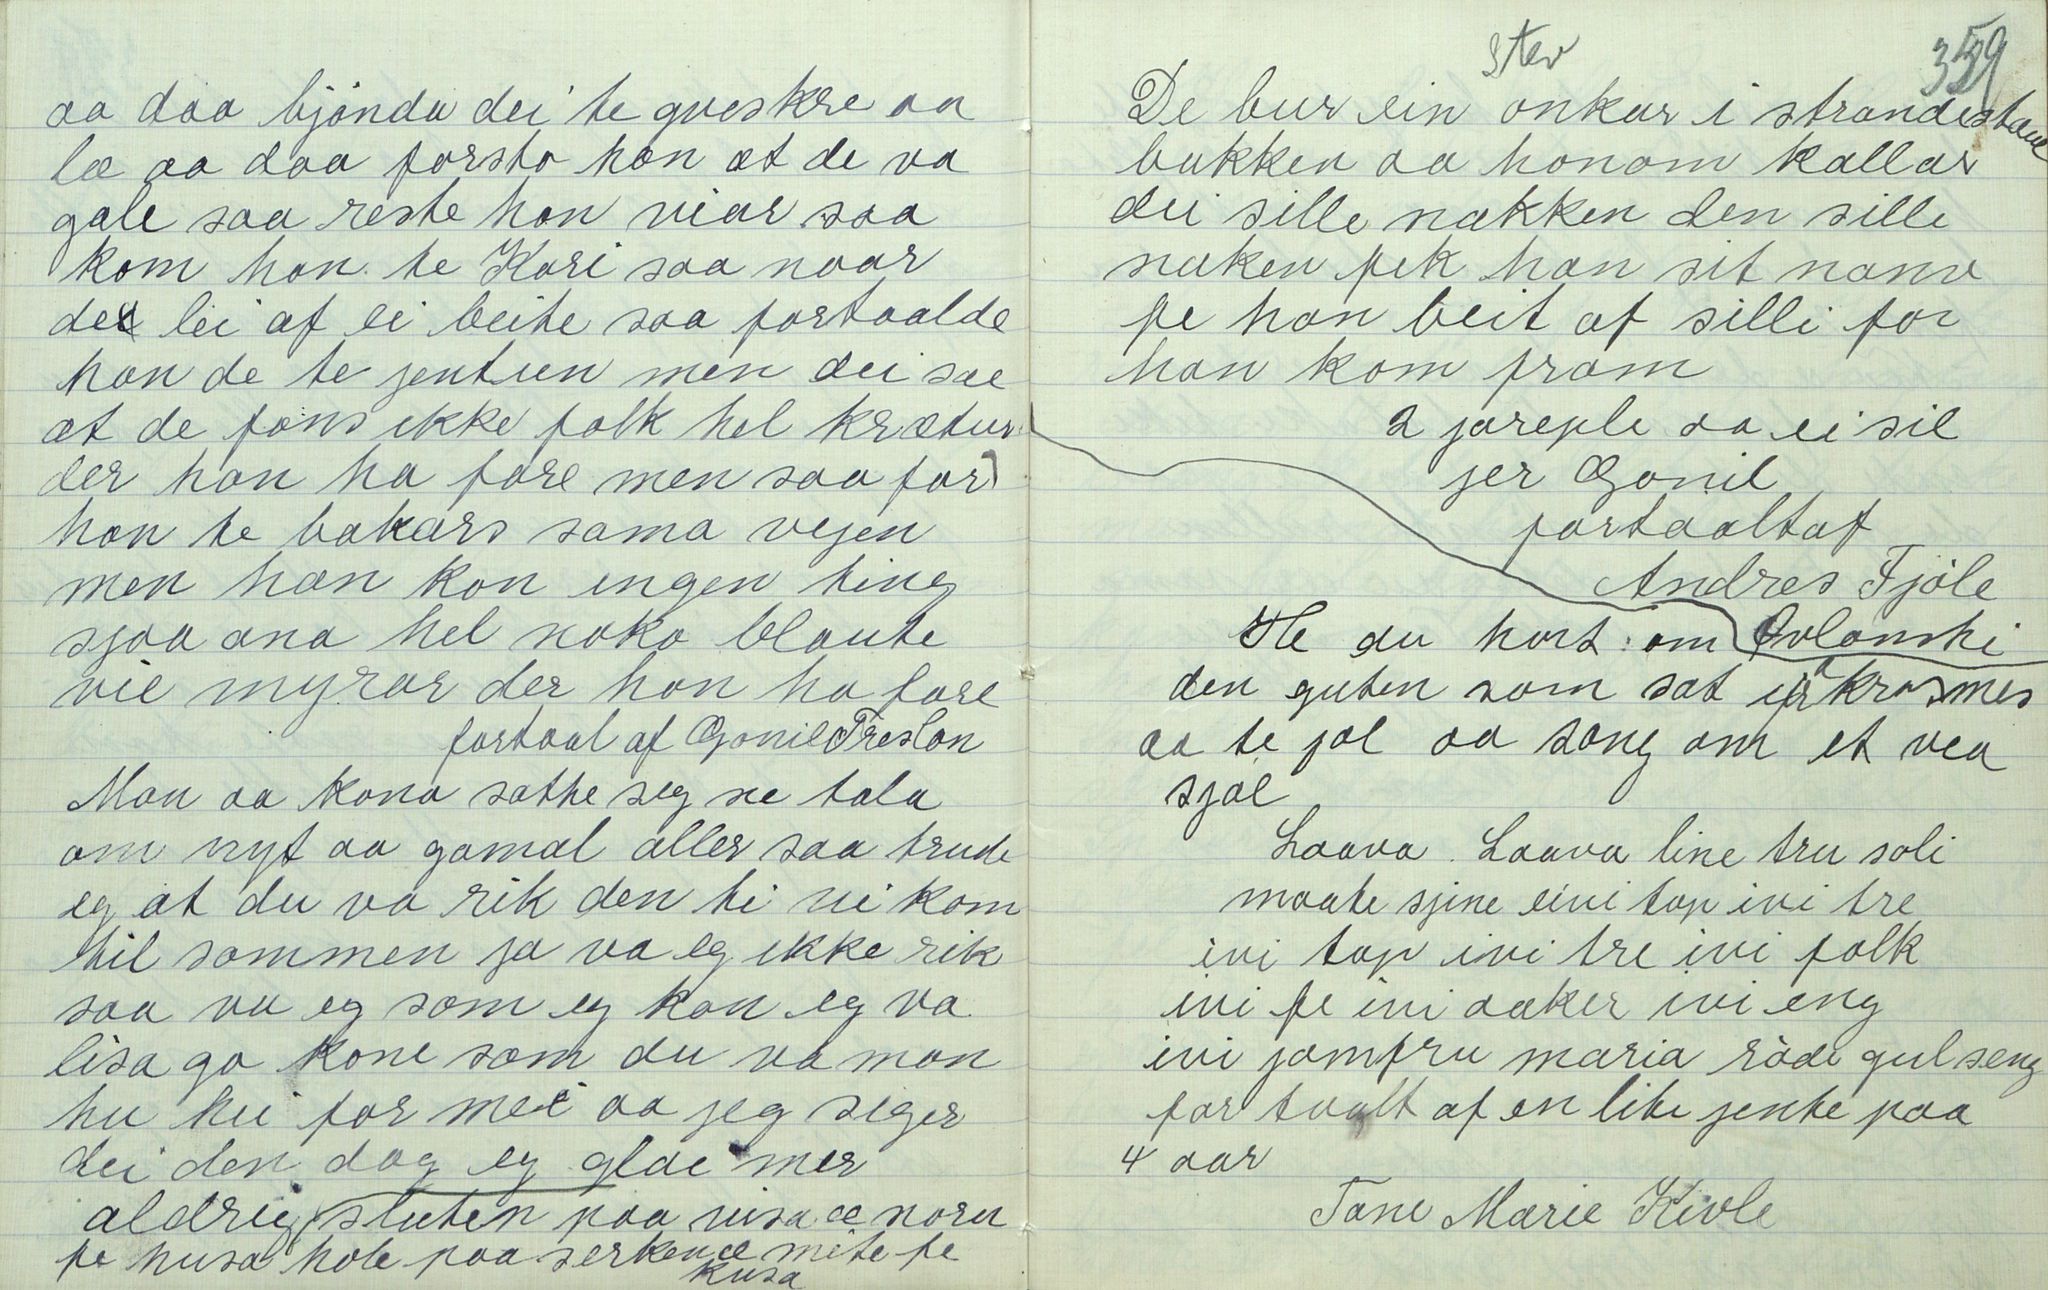 aa daa bjönda dei te gveskre aa
læ aa daa forsto han at de va
gale saa reste han viar saa
kom han te Kari saa naar
de lei af ei beite saa fortaalde
han de te jentun men dei sae
at de fans ikke folk hel krætur
der han ha fare men saa for
han te bakars sama vejen
men han kon ingen ting
sjaa ana hel noko blaute
vie myrar der han ha fare
fortaal af Gonil Treslon
Man aa kona sathe seg ne tala
om nyt aa gamal aller saa trude
eg at du va rik den ti vi kom
til sammen ja va eg ikke rik
saa va eg som eg kan eg va
lisa go kone som du va man
hu hei for mei aa jeg seger
dei den dag eg glae mer
aldrig sluten paa visa æ noru
fe husa hole paa serken æ mite fe
kusa
Stev
359
De bur ein onkar i strandestaue
bakken aa honom kallar
dei sille nakken den sille
naken fek han sit namn
fe han beit af silli for
han kom fram
2 jareple aa ei sil
jer Gonil
fortaaltaf
Andres Fjöle
He du hort om Ovlanski
den guten som sat i krosmes
aa te jol aa song om et vea
sjol
Laava Laava line tru soli
maate sjine eivi top ivi tre
ivi top ivi tre ivi folk
ivi fe ivi aaker ivi eng
ivi jomfru maria röde gul seng
for taalt af en lite jente paa
4 aar
Tone Marie Kivle